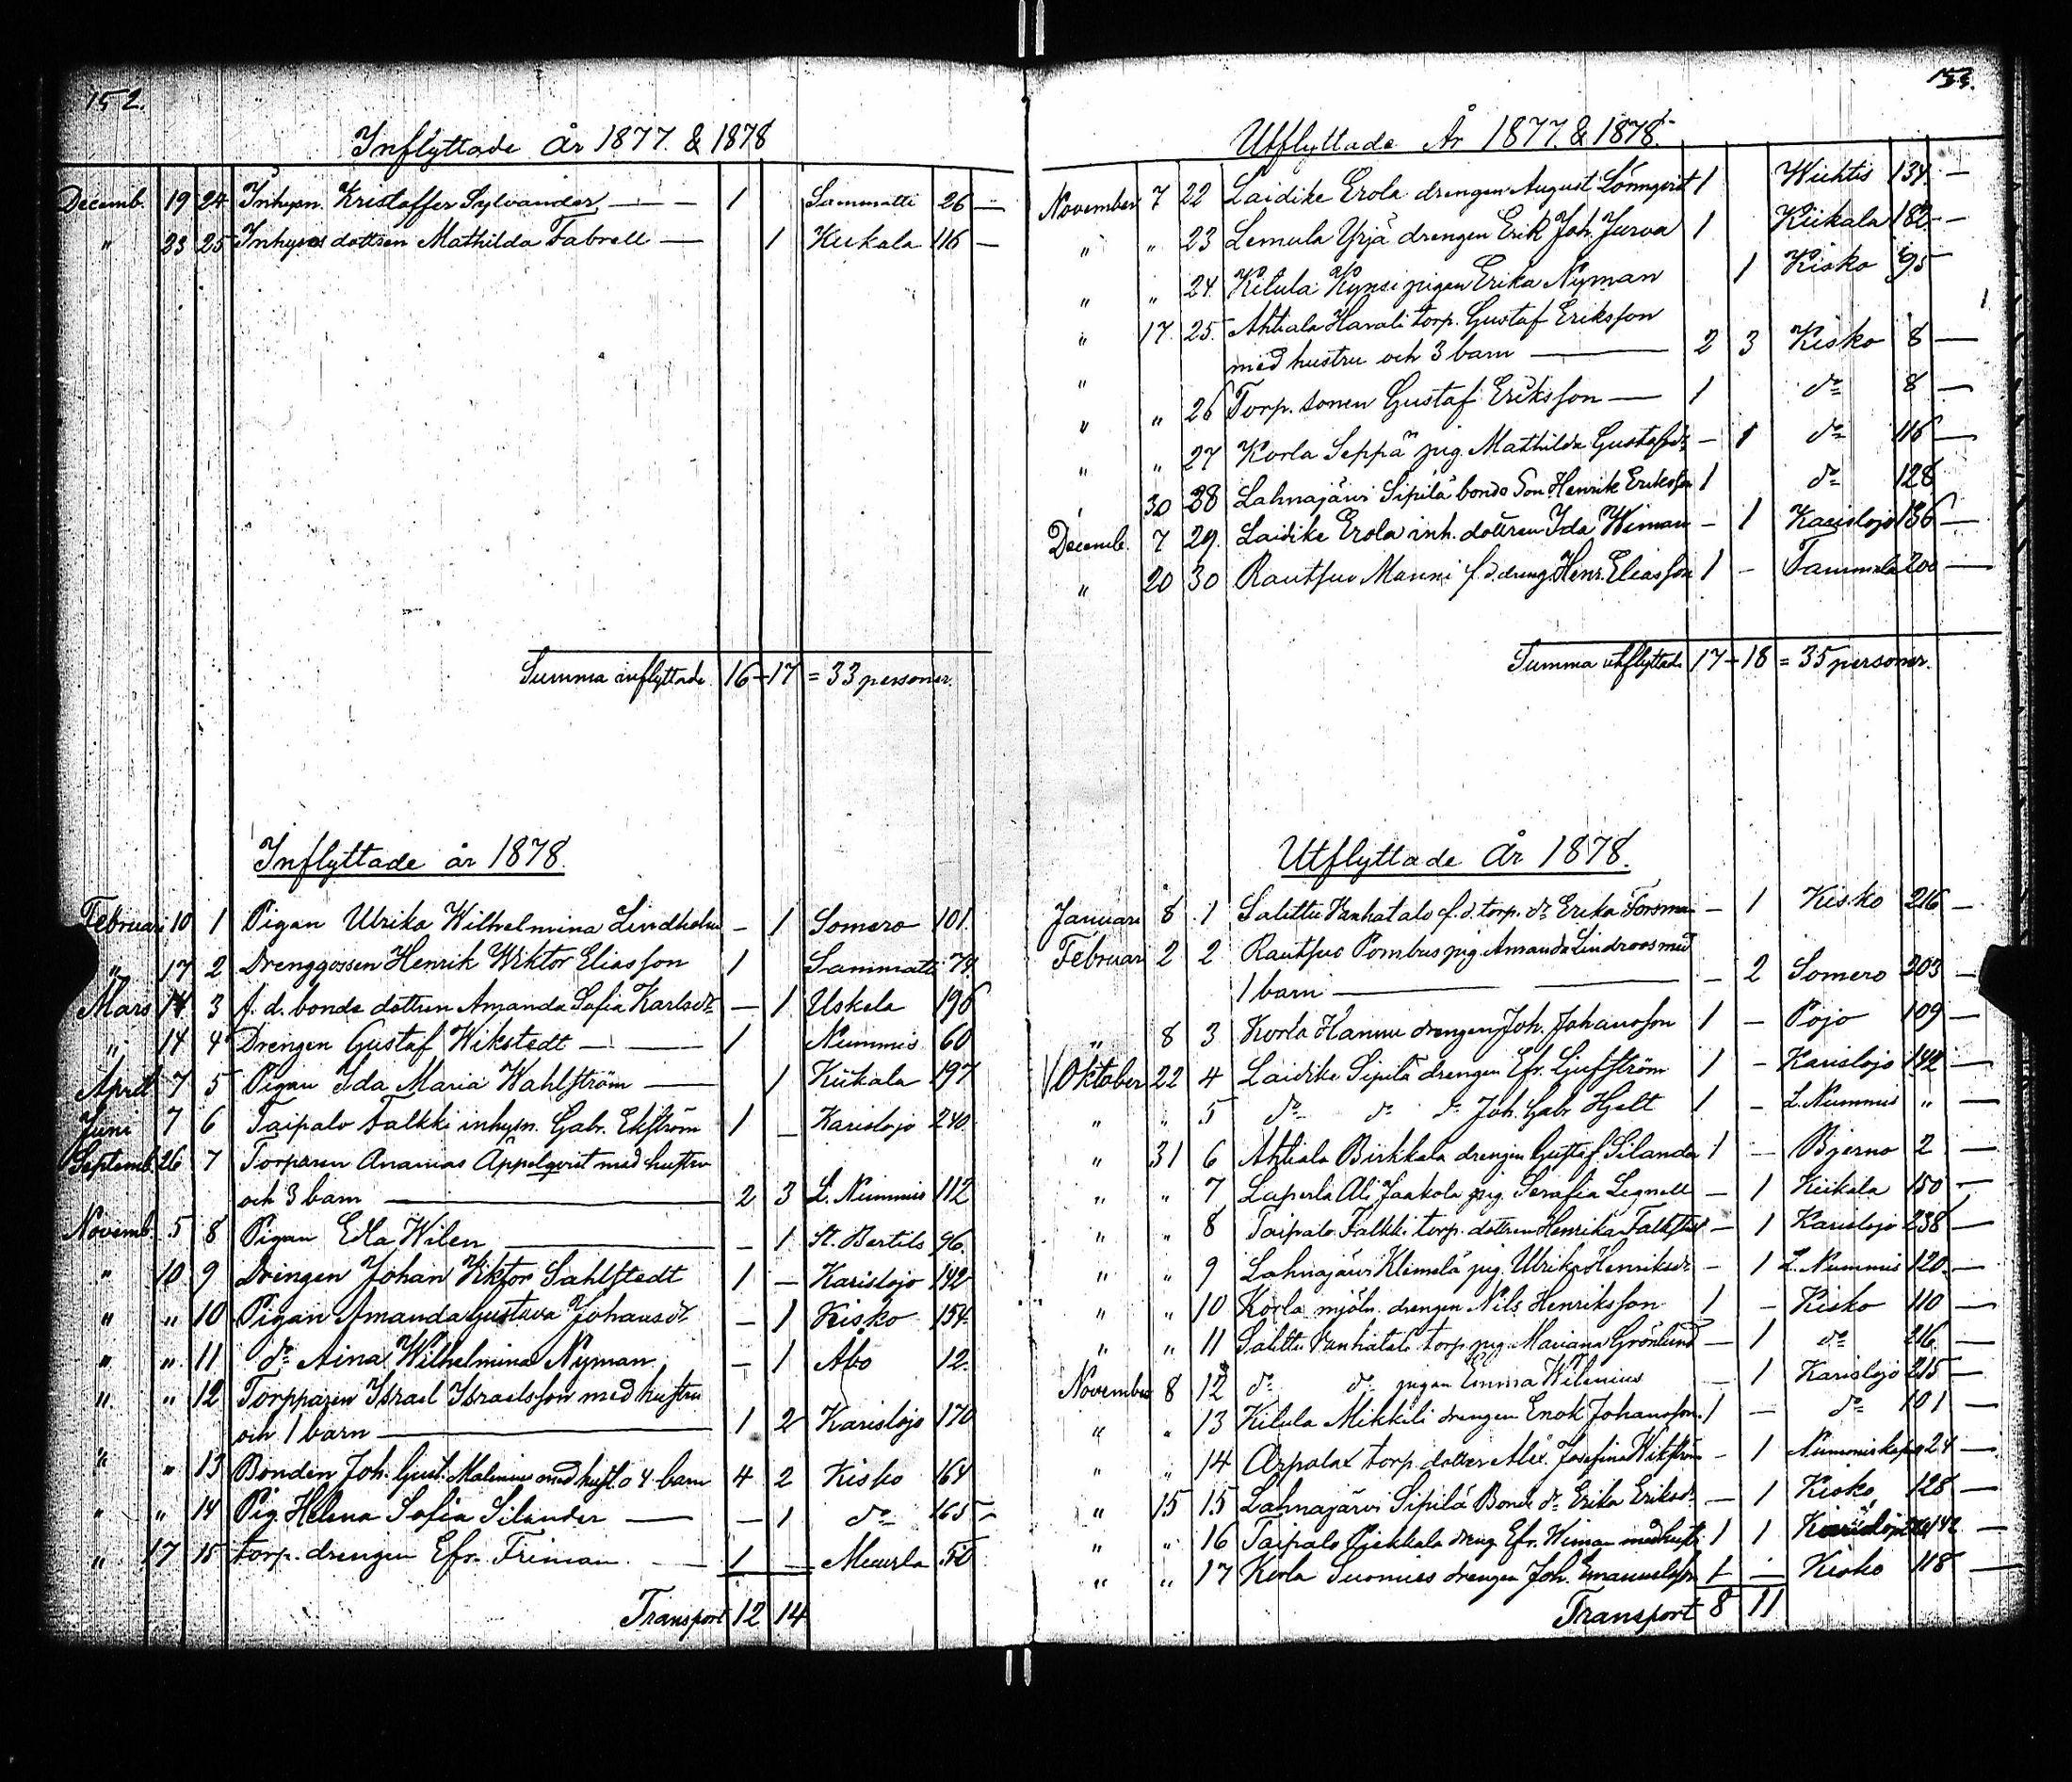 152.
Inflyttade år 1877. & 1878
Decemb. 19 24 Inhysn. Kristoffer Sylvander — — 1 Sammatti 26 —
" 23 25 Inhyses dottren Mathilda Fabrell — 1 Kiikala 116 —
Summa inflyttade 16 — 17 = 33 personer.
Inflyttade år 1878.
Februari 10 1 Pigan Ulrika Wilhelmina Lindholm — 1 Somero 101.
" 17 2 Drenggossen Henrik Wiktor Eliasson 1 Sammatti 74.
Mars 14 3 f. d. bonde dottren Amanda Sofia Karlsdr — 1 Uskela 196
" 14 4 Drengen Gustaf Wikstedt — 1 Nummis 60
April 7 5 Pigan Ida Maria Wahlström — 1 Kiikala 197
Juni 7 6 Taipalo Falkki inhysn. Gabr. Ekström 1 — Karislojo 240
Septemb. 26 7 Torparen Ananias Appelqvist med hustru
och 3 barn — 2 3 L. Nummis 112
Novemb. 5 8 Pigan Edla Wilen — — 1 St. Bertils 96.
" 10 9 Drengen Johan Viktor Sahlstedt 1 — Karislojo 142
" " 10 Pigan Amanda Gustava Johansdr — 1 Kisko 154.
" " 11 do Aina Wilhelmina Nyman — 1 Åbo 12.
" " 12 Torpparen Israel Israelsson med hustru
och 1 barn — 1 2 Karislojo 170
" " 13 Bonden Joh. Gust. Malenius med hust. o 4 barn 4 2 Kisko 164
" " 14 Pig. Helena Sofia Silander — — 1 do 165 —
" 17 15 torp. drengen Efr. Friman — 1 — Muurla 50
Transport 12 14
153.
Utflyttade År 1877. & 1878.
November 7 22 Laidike Erola drengen August Lönnqvist 1 Wichtis 134. —
" " 23 Lemula Yrjä drengen Erik Joh. Jurva 1 Kiikala 182 —
" " 24. Kitula Kynsi pigan Erika Nyman 1 Kisko 95 —
" 17. 25. Ahtiala Havali torp. Gustaf Eriksson
" med hustru och 3 barn — 2 3 Kisko 8 —
" " 26 Torp. sonen Gustaf Eriksson — 1 do 8 —
" " 27 Korla Seppä pig. Mathilda Gustafsdr — 1 do 116 —
" 30 28 Lahnajärvi Sipilä bonde son Henrik Eriksson 1 do 128
Decemb. 7 29. Laidike Erola inh. dottren Ida Wiman — 1 Karislojo 136 —
" 20 30 Rautsuo Manni f. d. dreng Henr. Eliasson 1 — Tammela 200 —
Summa utflyttade 17 — 18 = 35 personer.
Utflyttade År 1878.
Januari 8 1 Salittu Vanhatalo f. d. torp. dr Erika Forsman — 1 Kisko 216 —
Februari 2 2 Rautsuo Pombus pig. Amanda Lindroos med
1 barn — — — 2 Somero 203 —
" 8 3 Korla Hannu drengen Joh. Johansson 1 — Pojo 109 —
V Oktober 22 4 Laidike Sipilä drengen Efr. Ljufström 1 — Karislojo 142 —
" " 5 do do do Joh. Gabr. Hjelt 1 — L. Nummis " —
" 31 6 Ahtiala Birkkala drengen Gustaf Silander 1 — Bjerno 2 —
" " 7 Laperla Ali Jaakola pig. Serafia Legnell — 1 Kiikala 150 —
" " 8 Taipalo Falkki torp. dottren Henrika — 1 Karislojo 238 —
" " 9 Lahnajärvi Klemelä pig. Ulrika Henriksdr — 1 L. Nummis 120 —
" " 10 Korla mjöln. drengen Nils Henriksson 1 — Kisko 110 —
" " 11 Salittu Vanhatalo torp. pig. Mariana Grönlund — 1 do 216 —
November 8 12 do do pigan Emma Wilenius — 1 Karislojo 215 —
" " 13 Kitula Mikkili drengen Enok Johansson. 1 — do 101 —
" " 14 Arpalax torp. dotter Alex. Josefina Wikström — 1 24 —
" 15 15 Lahnajärvi Sipilä Bonde dr Erika Eriksdr — 1 Kisko 128 —
" " 16 Taipalo Pirkkala dreng Efr. Wiman med hustr. 1 1 Karislojo 142 —
" " 17 Korla Suomies drengen Joh. Emanuelsson 1 — Kisko 118 —
Transport 8 11